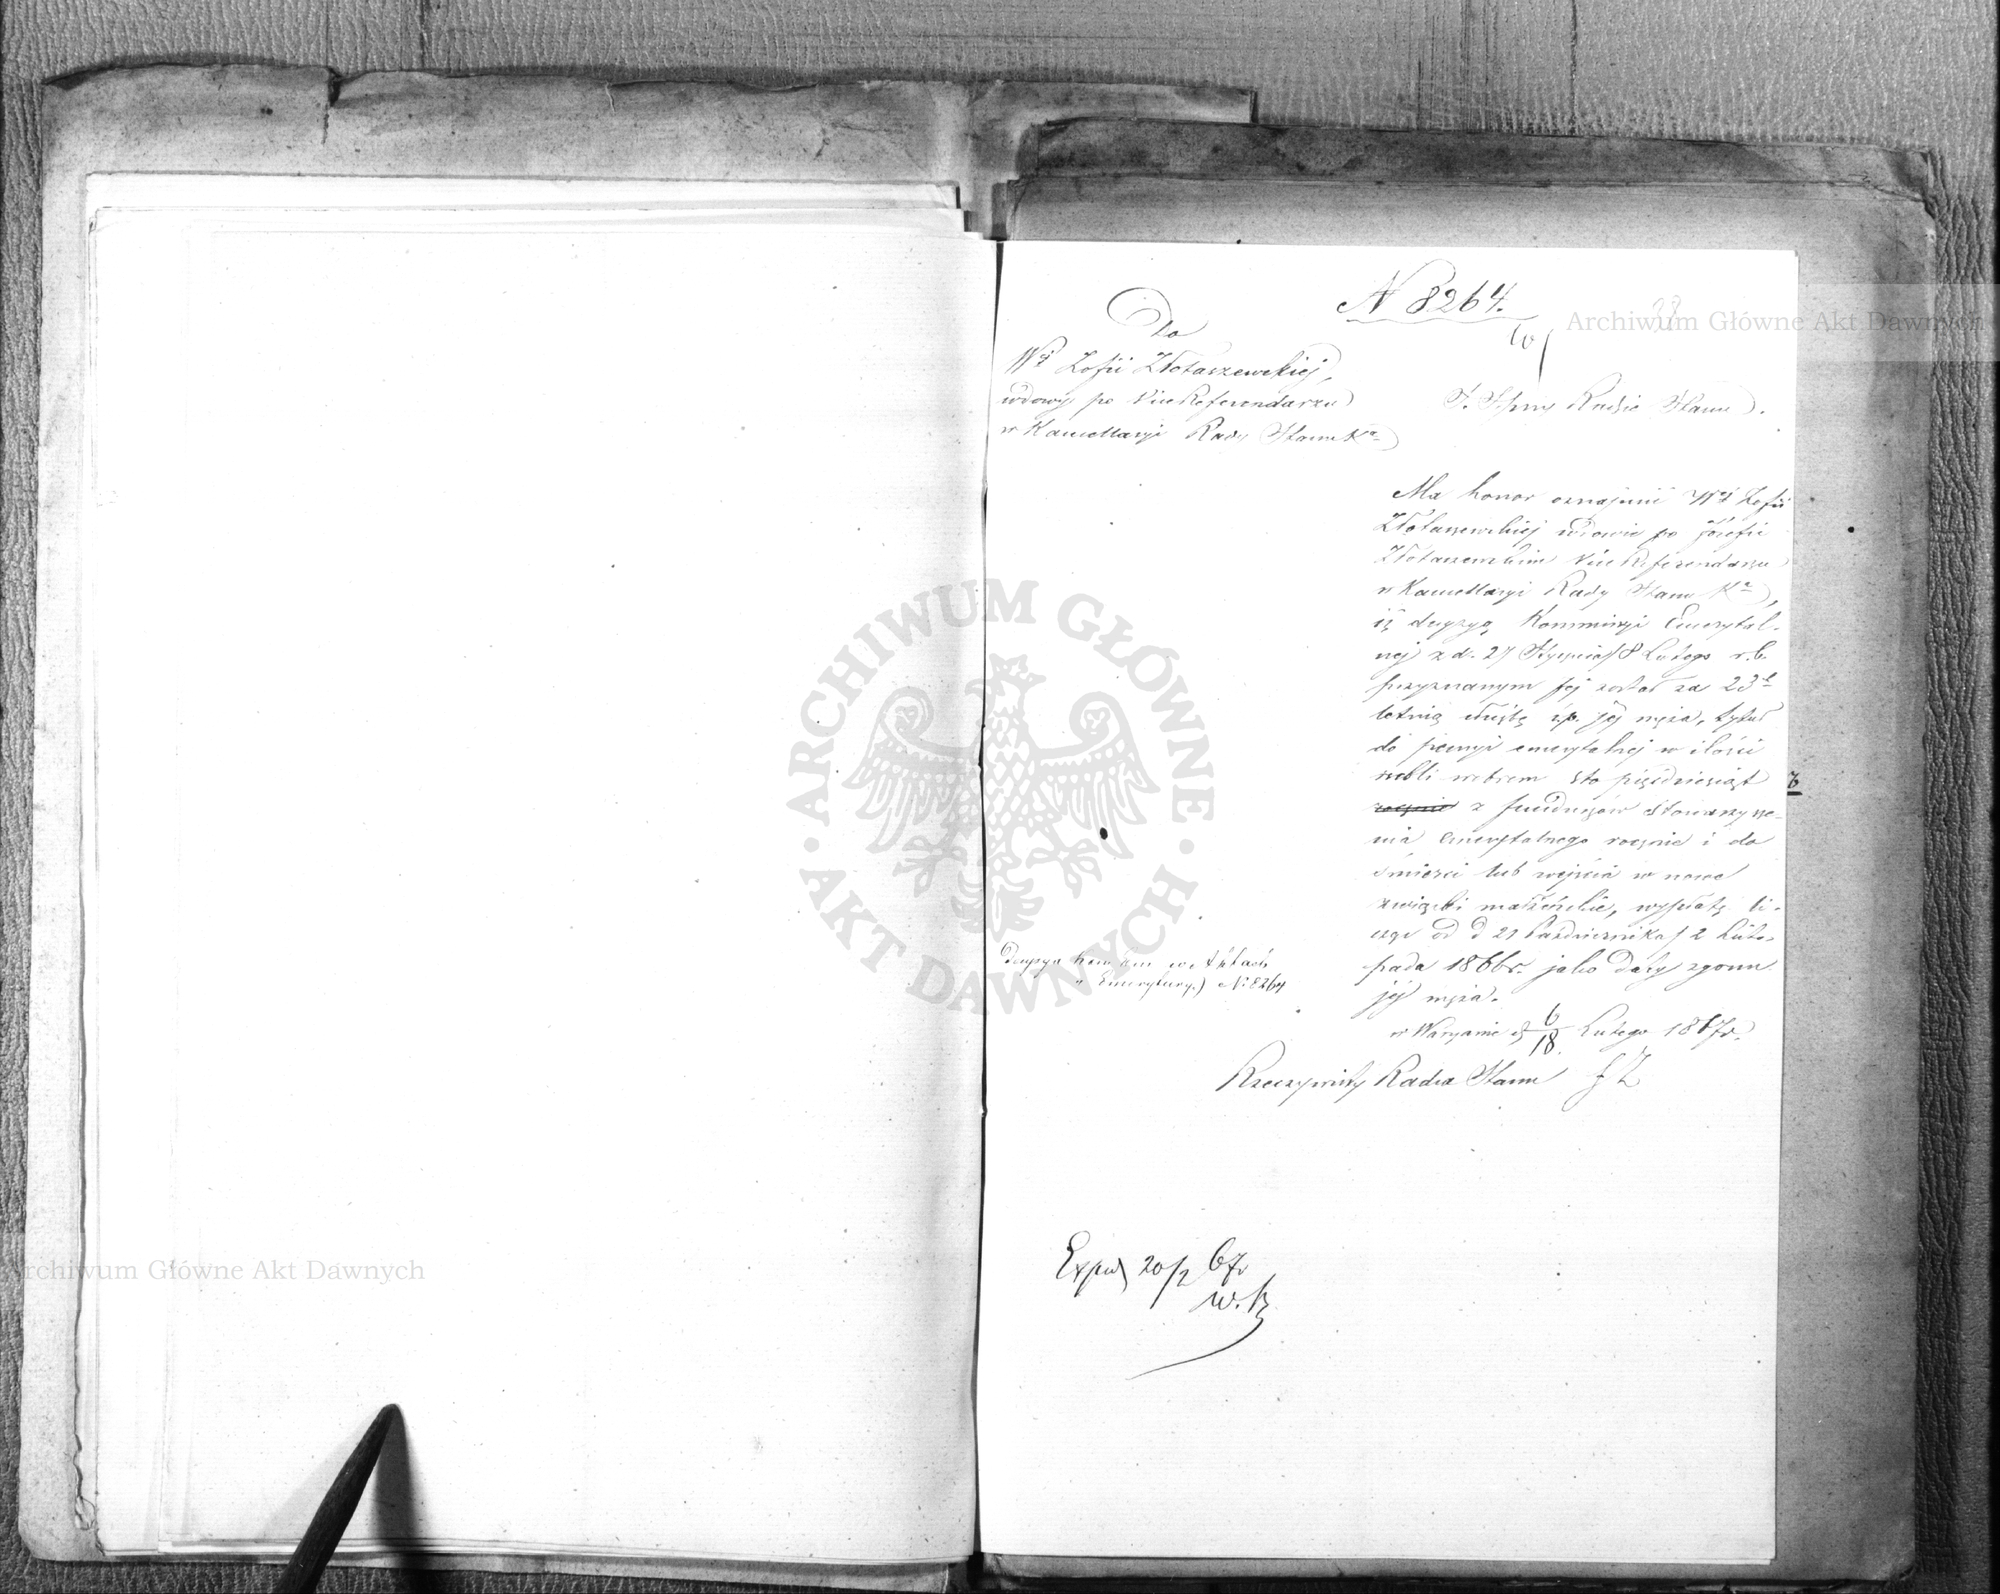 N 8264.
38
Do
Wej Zofii Złotaszewskiej,
wdowy po ViceReferendarzu
w Kancellaryi Rady Stanu Kr
Radzie Stanu.
Ma honor oznajmić Wej Zofii
Złotaszewskiej wdowie po Józefie
Złotaszewskim ViceReferendarzu
w Kancellaryi Rady Stanu Kr,
iż decyzyą Kommissyi Emerytal-
nej z d. 27 Stycznia/8 Lutego r.b.
przyznanym jej został za 23ch
letnią służbę ś.p. jej męża, tytuł
do pensyi emerytalnej w ilości
rubli srebrem sto pięćdziesiąt
rocznie z funduszów Stowarzysze-
nia emerytalnego rocznie i do
śmierci lub wejścia w nowe
związki małżeńskie, wypłatę li-
cząc od d 21 Października/2 Listo-
pada 1866 r. jako daty zgonu
jej męża.
w Warszawie d 6/18 Lutego 1867 r.
Decyzya Kom Em w aktach
Emerytury N: 8264
Rzeczywisty Radca Stanu
Exped 20/2 67r
w. K.
Archiwum Główne Akt Dawnych
ARCHIWUM GŁÓWNE
AKT DAWNYCH
Archiwum Główne Akt Dawnych